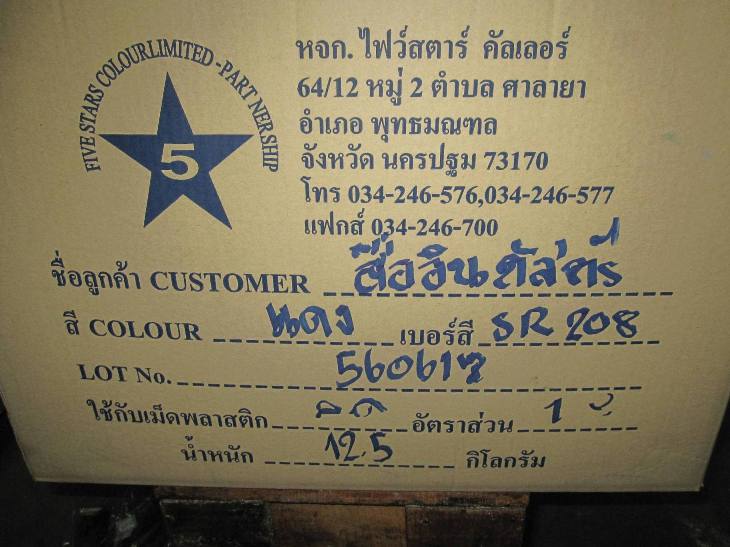 FIVE STARS COLOURLIMITED-PARTNERSHIP
5
หจก. ไฟว์สตาร์ คัลเลอร์
64/12 หมู่ 2 ตำบล ศาลายา
อำเภอ พุทธมณฑล
จังหวัด นครปฐม 73170
โทร 034-246-576,034-246-577
แฟกส์ 034-246-700
ชื่อลูกค้า CUSTOMER
สี COLOUR แดง เบอร์สี SR 208
LOT No.
ใช้กับเม็ดพลาสติก อัตราส่วน 1
น้ำหนัก 12.5 กิโลกรัม